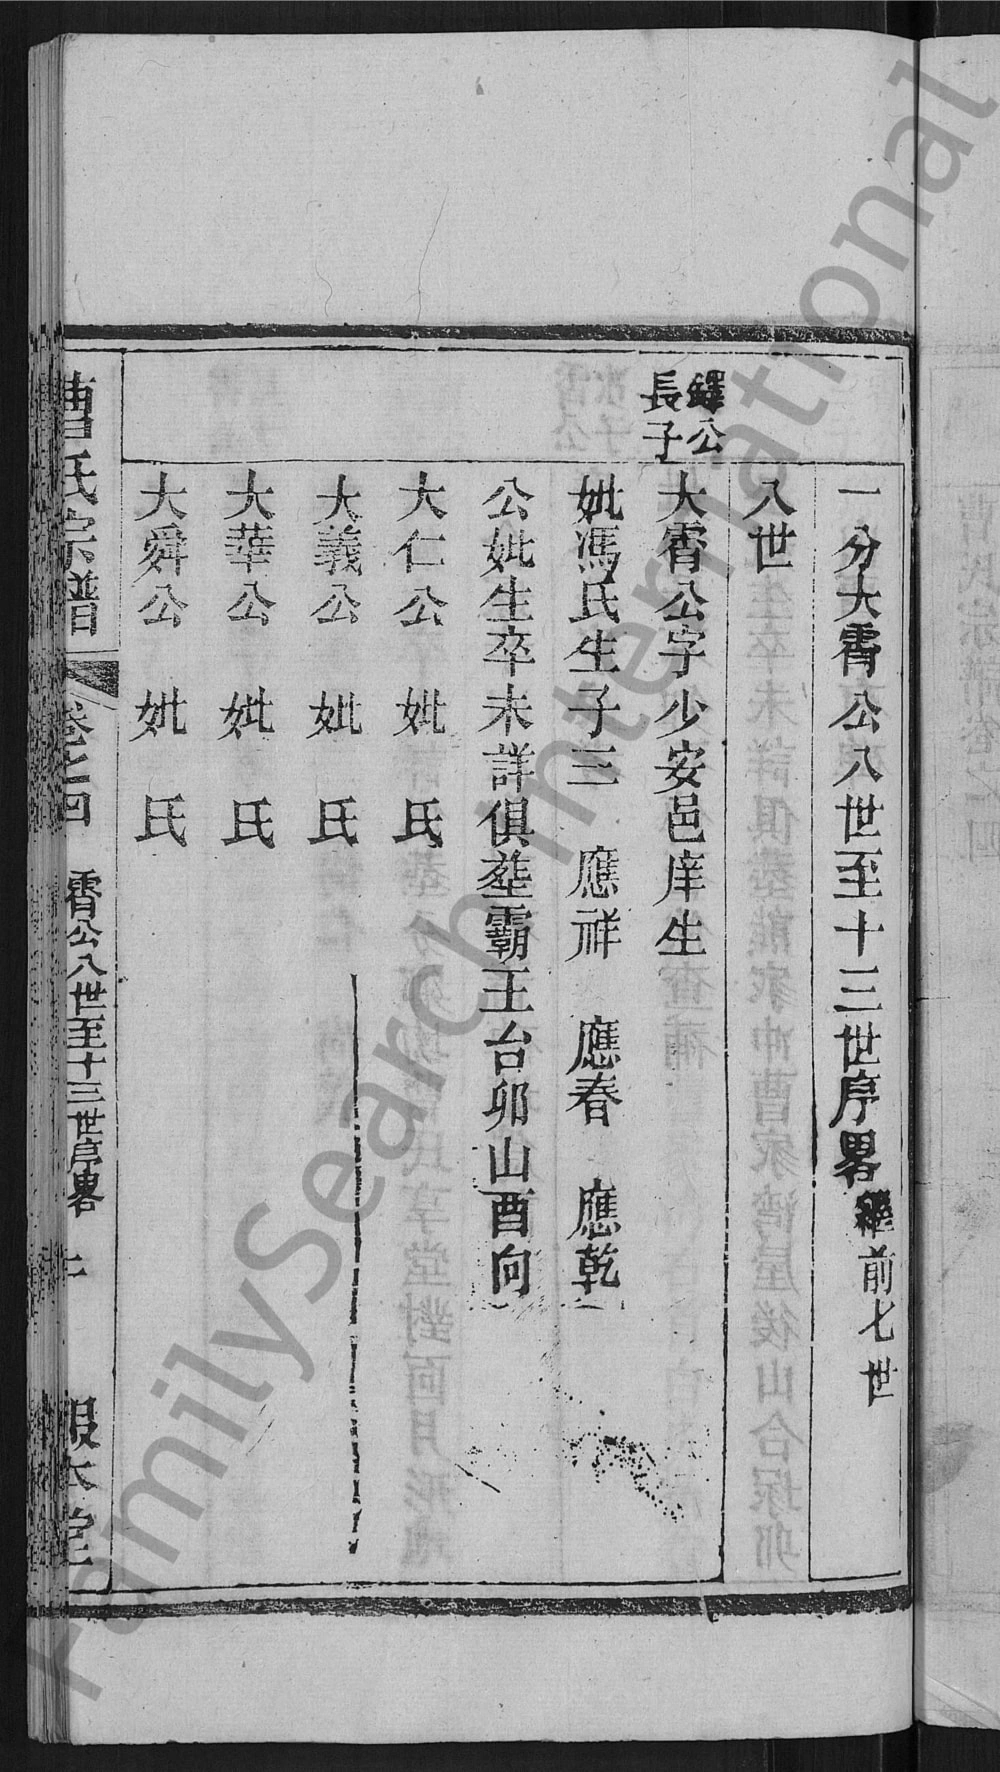 一分大霄公八世至十三世序畧 繼前七世
八世
鐸公
長子
大霄公字少安邑庠生
妣馮氏生子三 應祥 應春 應乾
公妣生卒未詳俱塟霸王台卯山酉向
大仁公 妣 氏
大義公 妣 氏
大華公 妣 氏
大舜公 妣 氏
曹氏宗譜 卷之四 霄公八世至十三世序畧 十 報本堂
FamilySearch International